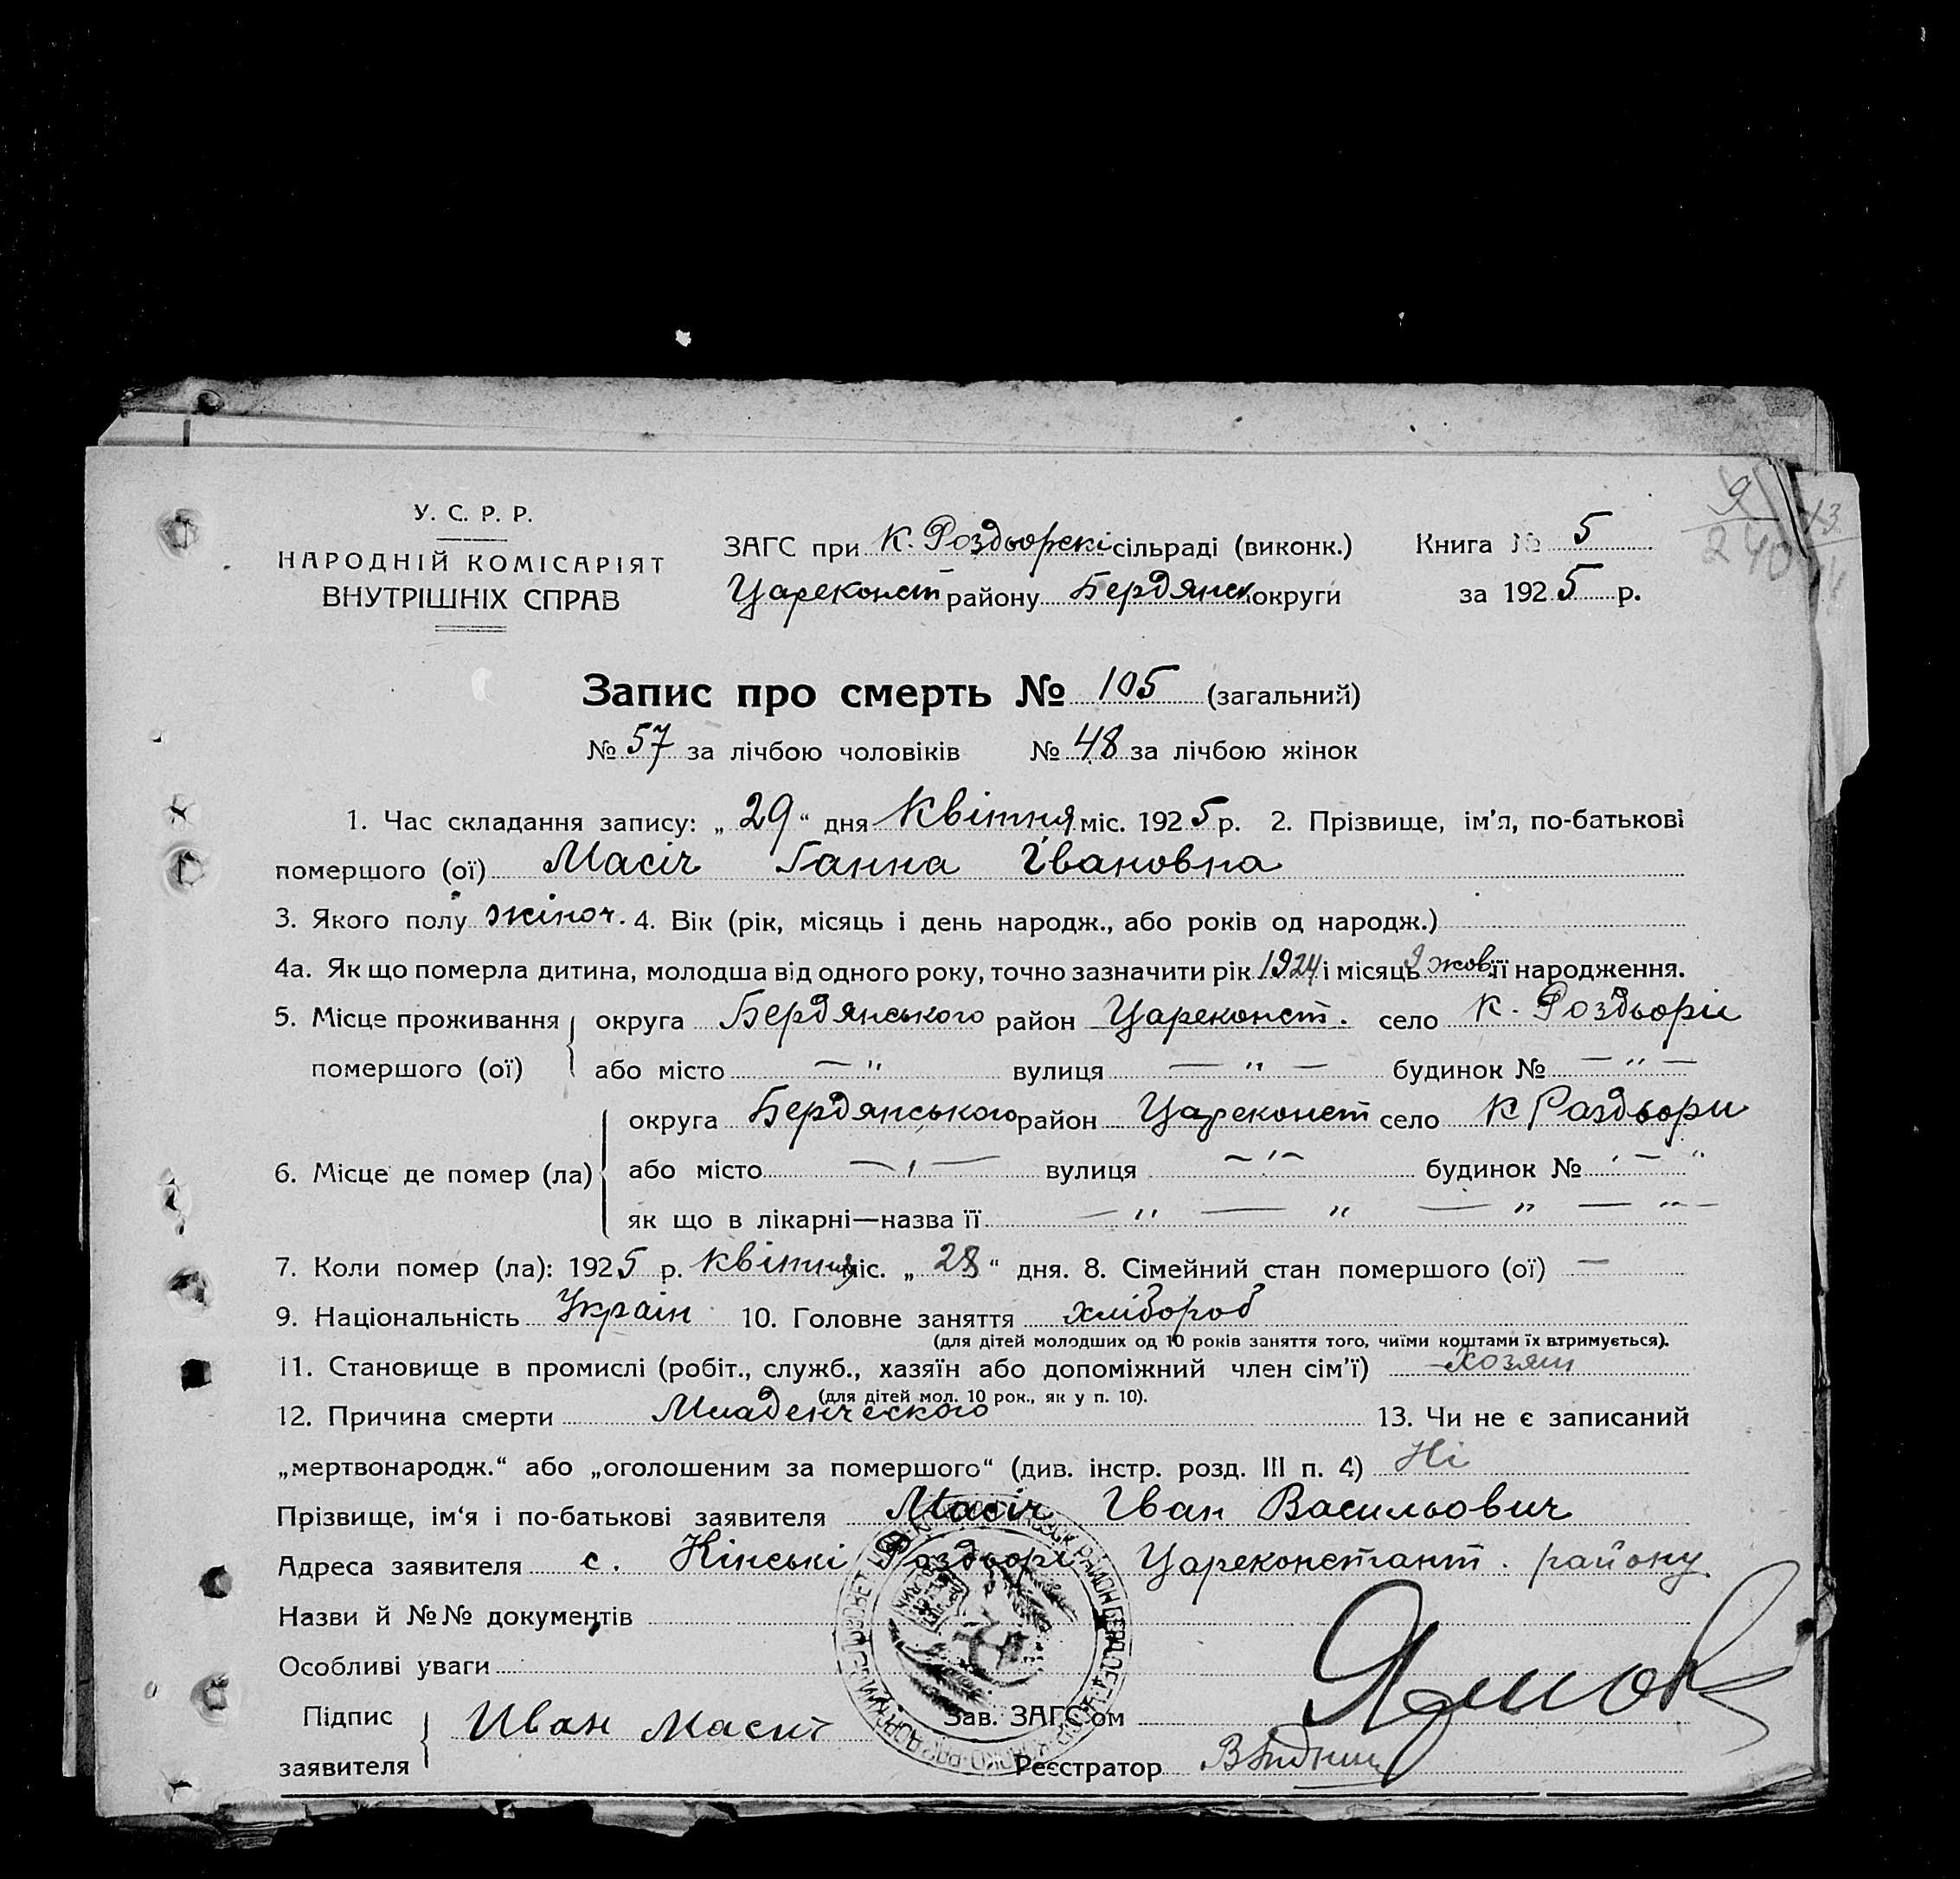 У. С. Р. Р.
НАРОДНІЙ КОМІСАРІЯТ
ВНУТРІШНІХ СПРАВ
ЗАГС при К. Роздьорскі сільраді (виконк.)
Цареконст району Бердянськ округи
Книга № 5
за 1925 р.
9
240
13
Запис про смерть № 105 (загальний)
№ 57 за лічбою чоловіків № 48 за лічбою жінок
1. Час складання запису: „ 29 “ дня Квітня міс. 1925 р. 2. Прізвище, ім'я, по-батькові
помершого (ої) Масіч Ганна Івановна
3. Якого полу жіноч. 4. Вік (рік, місяць і день народж., або років од народж.)
4а. Як що померла дитина, молодша від одного року, точно зазначити рік 1924 і місяць 9 жов. її народження.
5. Місце проживання помершого (ої) округа Бердянського район Цареконст. село К. Роздьорі
або місто — " вулиця — " — будинок № — " —
6. Місце де помер (ла) округа Бердянського район Цареконст село К Раздьори
або місто — , — вулиця — , — будинок № , — "
як що в лікарні—назва її — " — " — " — " —
7. Коли помер (ла): 1925 р. квітня міс. „ 28 “ дня. 8. Сімейний стан помершого (ої) —
9. Національність Україн 10. Головне заняття хлібороб
(для дітей молодших од 10 років заняття того, чиїми коштами їх втримується).
11. Становище в промислі (робіт., служб., хазяїн або допоміжний член сім'ї) хозяїн
(для дітей мол. 10 рок., як у п. 10).
12. Причина смерти Младенческого 13. Чи не є записаний
„мертвонародж.“ або „оголошеним за помершого“ (див. інстр. розд. III п. 4) Ні
Прізвище, ім'я і по-батькові заявителя Масіч Іван Васильович
Адреса заявителя с. Кінські Роздьорі Цареконстант. району
Назви й №№ документів
Особливі уваги
Підпис заявителя Иван Масич
Зав. ЗАГС'ом
Реєстратор